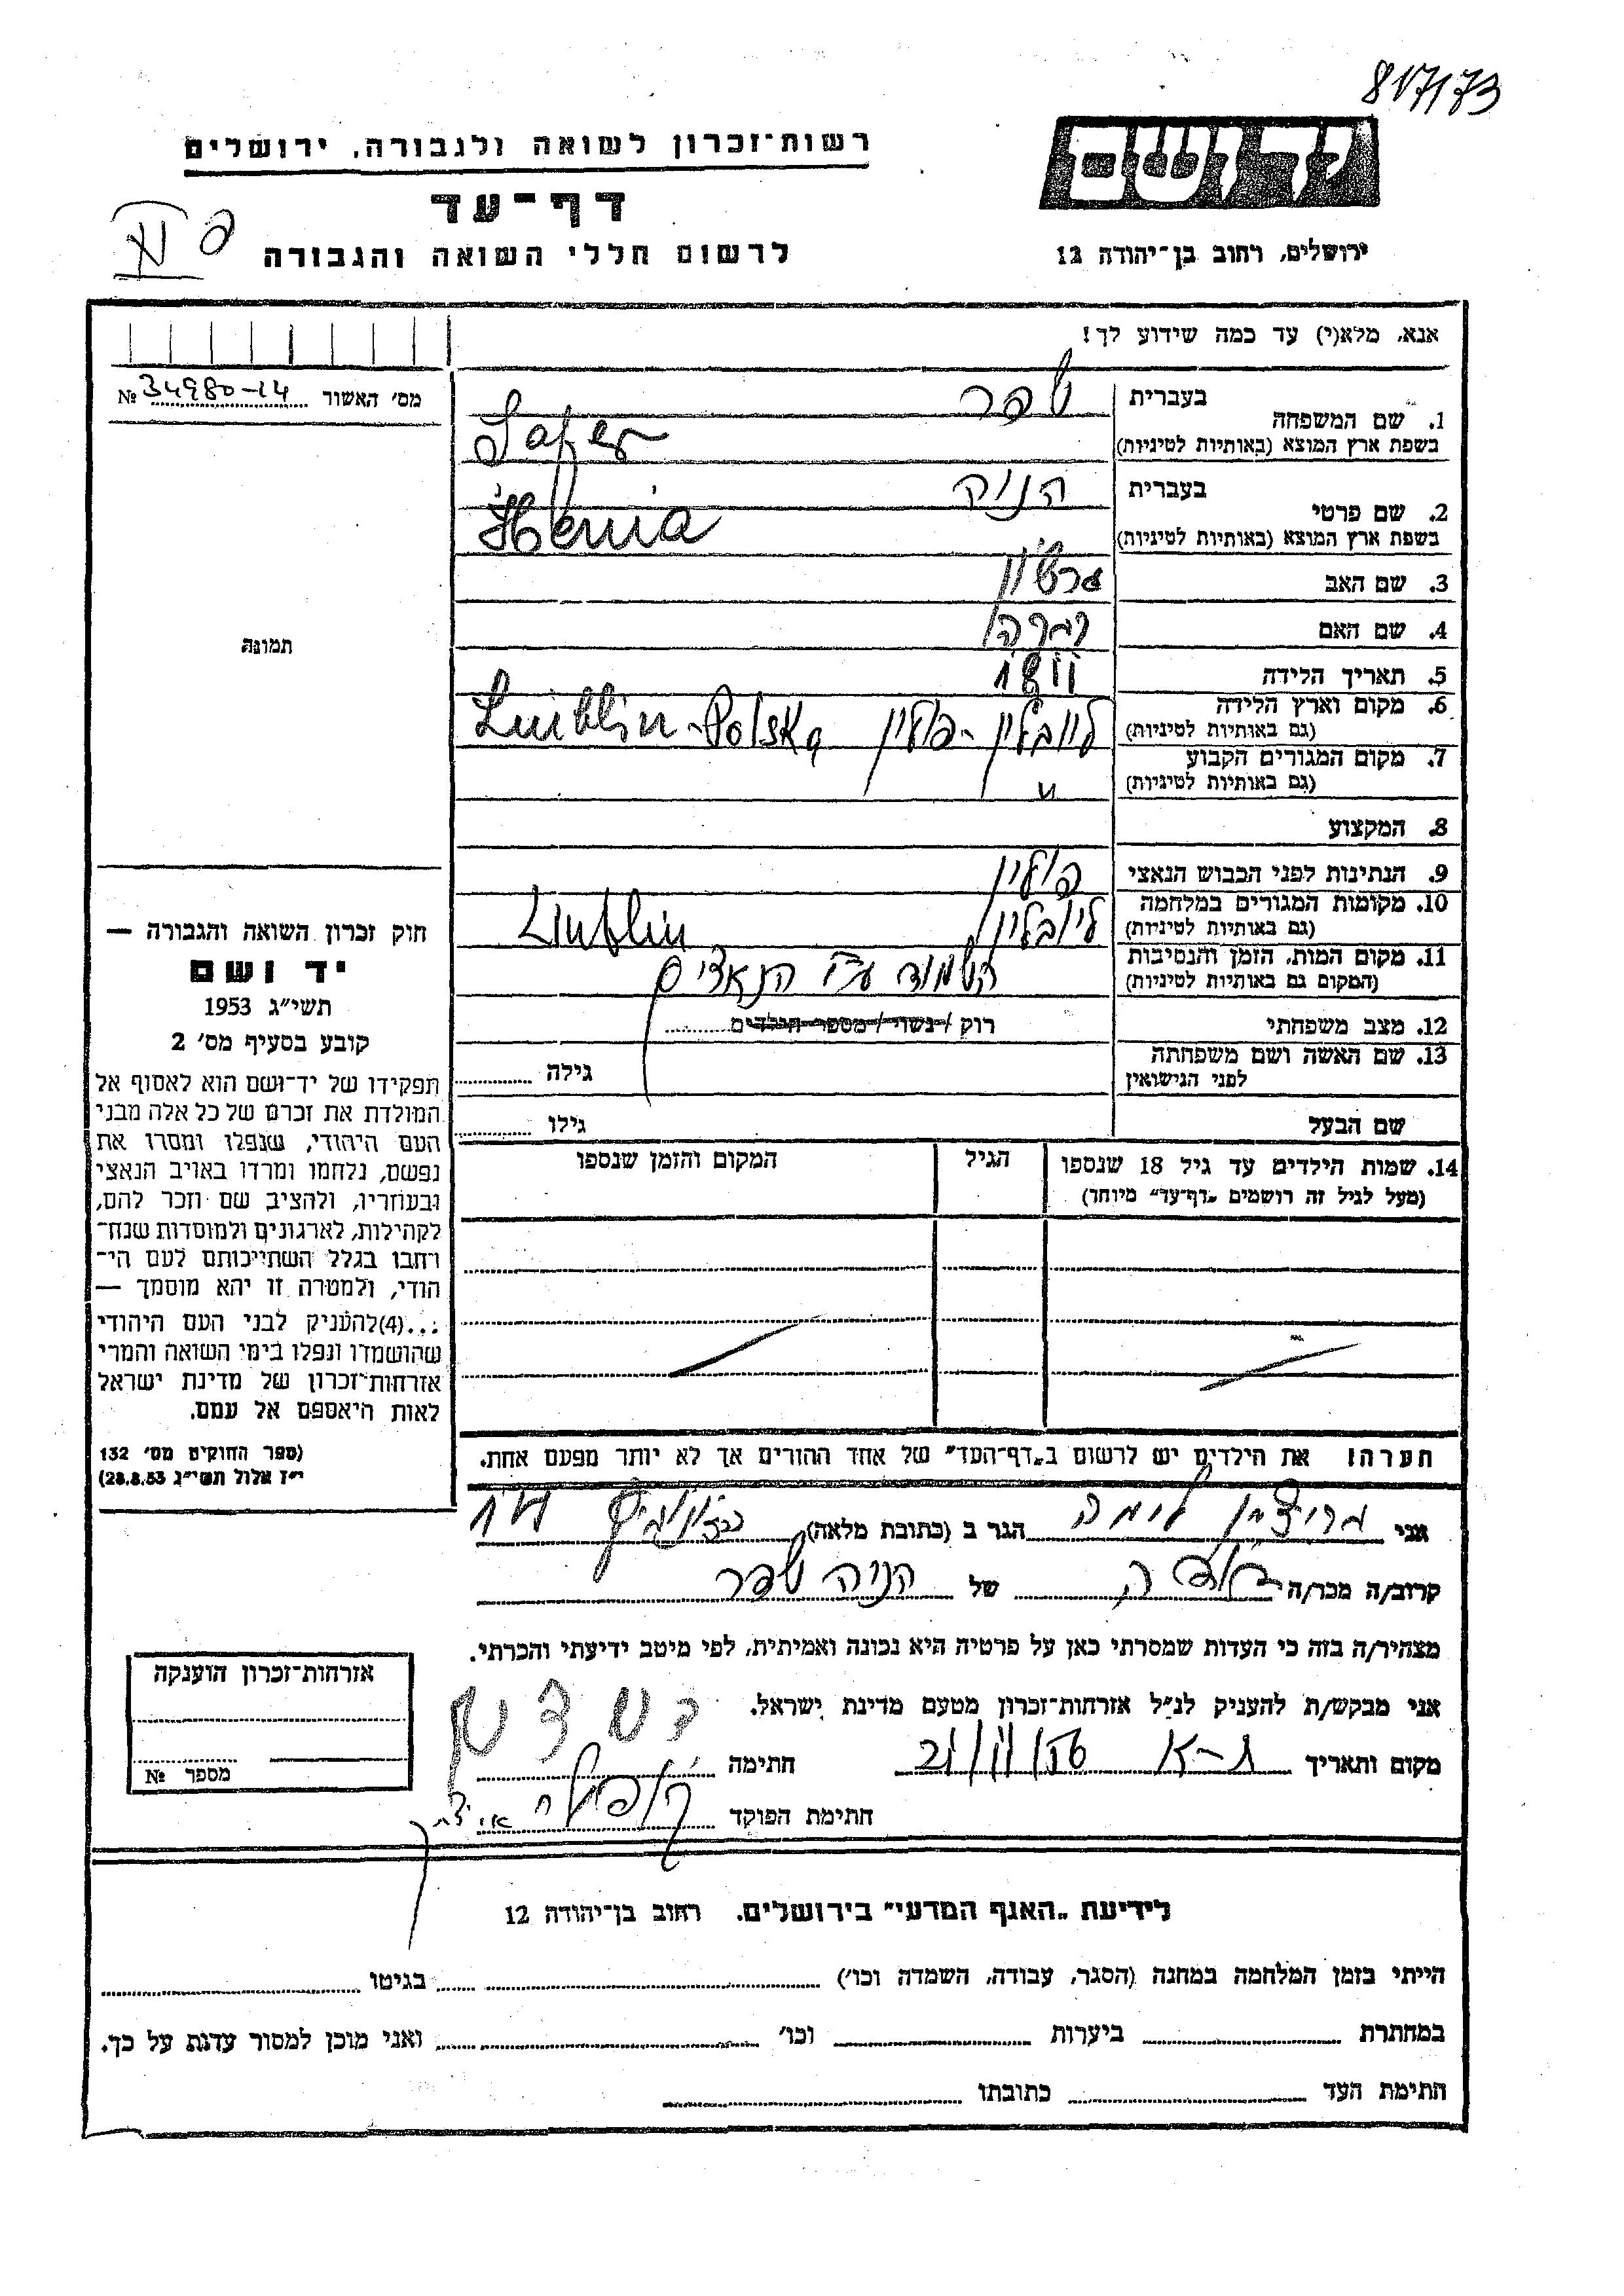 817173
רשות־זכרון לשואה ולגבורה, ירושלים
יד ושם
דף־עד
לרשום חללי השואה והגבורה
ירושלים, רחוב בן־יהודה 12
אנא, מלא(י) עד כמה שידוע לך!
מס׳ האשור № 34980-14
1. שם המשפחה בעברית שפר
בשפת ארץ המוצא (באותיות לטיניות) Safer
2. שם פרטי בעברית הניה
בשפת ארץ המוצא (באותיות לטיניות) Henia
3. שם האב גרשון
4. שם האם
5. תאריך הלידה
6. מקום וארץ הלידה לויבלין - פולין Lublin - Polska
(גם באותיות לטיניות)
7. מקום המגורים הקבוע "
(גם באותיות לטיניות)
8. המקצוע
9. הנתינות לפני הכבוש הנאצי פולין
10. מקומות המגורים במלחמה לויבלין Lublin
(גם באותיות לטיניות)
11. מקום המות, הזמן והנסיבות ע״י הנאצים
(המקום גם באותיות לטיניות)
12. מצב משפחתי רוק / נשוי / מספר הילדים
13. שם האשה ושם משפחתה גילה
לפני הנישואין
שם הבעל גילו
14. שמות הילדים עד גיל 18 שנספו הגיל המקום והזמן שנספו
(מעל לגיל זה רושמים „דף־עד” מיוחד)
תמונה
חוק זכרון השואה והגבורה —
יד ושם
תשי״ג 1953
קובע בסעיף מס׳ 2
תפקידו של יד־ושם הוא לאסוף אל
המולדת את זכרם של כל אלה מבני
העם היהודי, שנפלו ומסרו את
נפשם, נלחמו ומרדו באויב הנאצי
ובעוזריו, ולהציב שם וזכר להם,
לקהילות, לארגונים ולמוסדות שנח־
רחבו בגלל השתייכותם לעם הי־
הודי, ולמטרה זו יהא מוסמך —
...(4) להעניק לבני העם היהודי
שהושמדו ונפלו בימי השואה והמרי
אזרחות־זכרון של מדינת ישראל
לאות היאספם אל עמם.
(ספר החוקים מס׳ 132
י״ז אלול תשי״ג 28.8.53)
הערה! את הילדים יש לרשום ב„דף־העד” של אחד ההורים אך לא יותר מפעם אחת.
אני הגר ב (כתובת מלאה)
קרוב/ה מכר/ה של הניה שפר
מצהיר/ה בזה כי העדות שמסרתי כאן על פרטיה היא נכונה ואמיתית, לפי מיטב ידיעתי והכרתי.
אני מבקש/ת להעניק לנ״ל אזרחות־זכרון מטעם מדינת ישראל.
מקום ותאריך ת-א חתימה
חתימת הפוקד
אזרחות־זכרון הוענקה
מספר №
לידיעת „האגף המדעי” בירושלים, רחוב בן־יהודה 12
הייתי בזמן המלחמה במחנה (הסגר, עבודה, השמדה וכו׳) בגיטו
במחתרת ביערות וכו׳ ואני מוכן למסור עדות על כך.
חתימת העד כתובתו